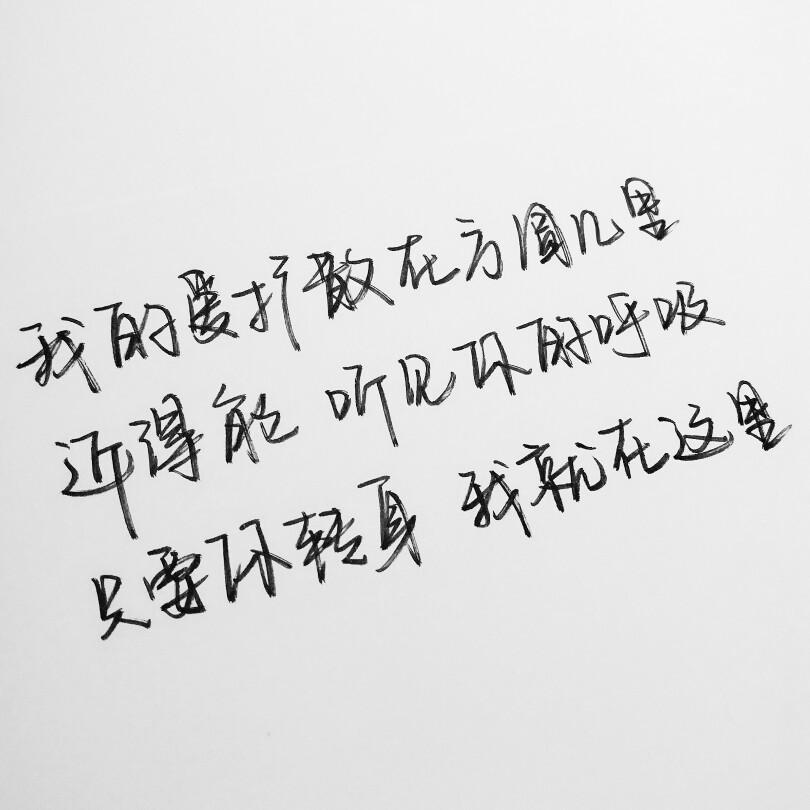 我的爱扩散在方圆几里
近得能 听见你的呼吸
只要你转身 我就在这里